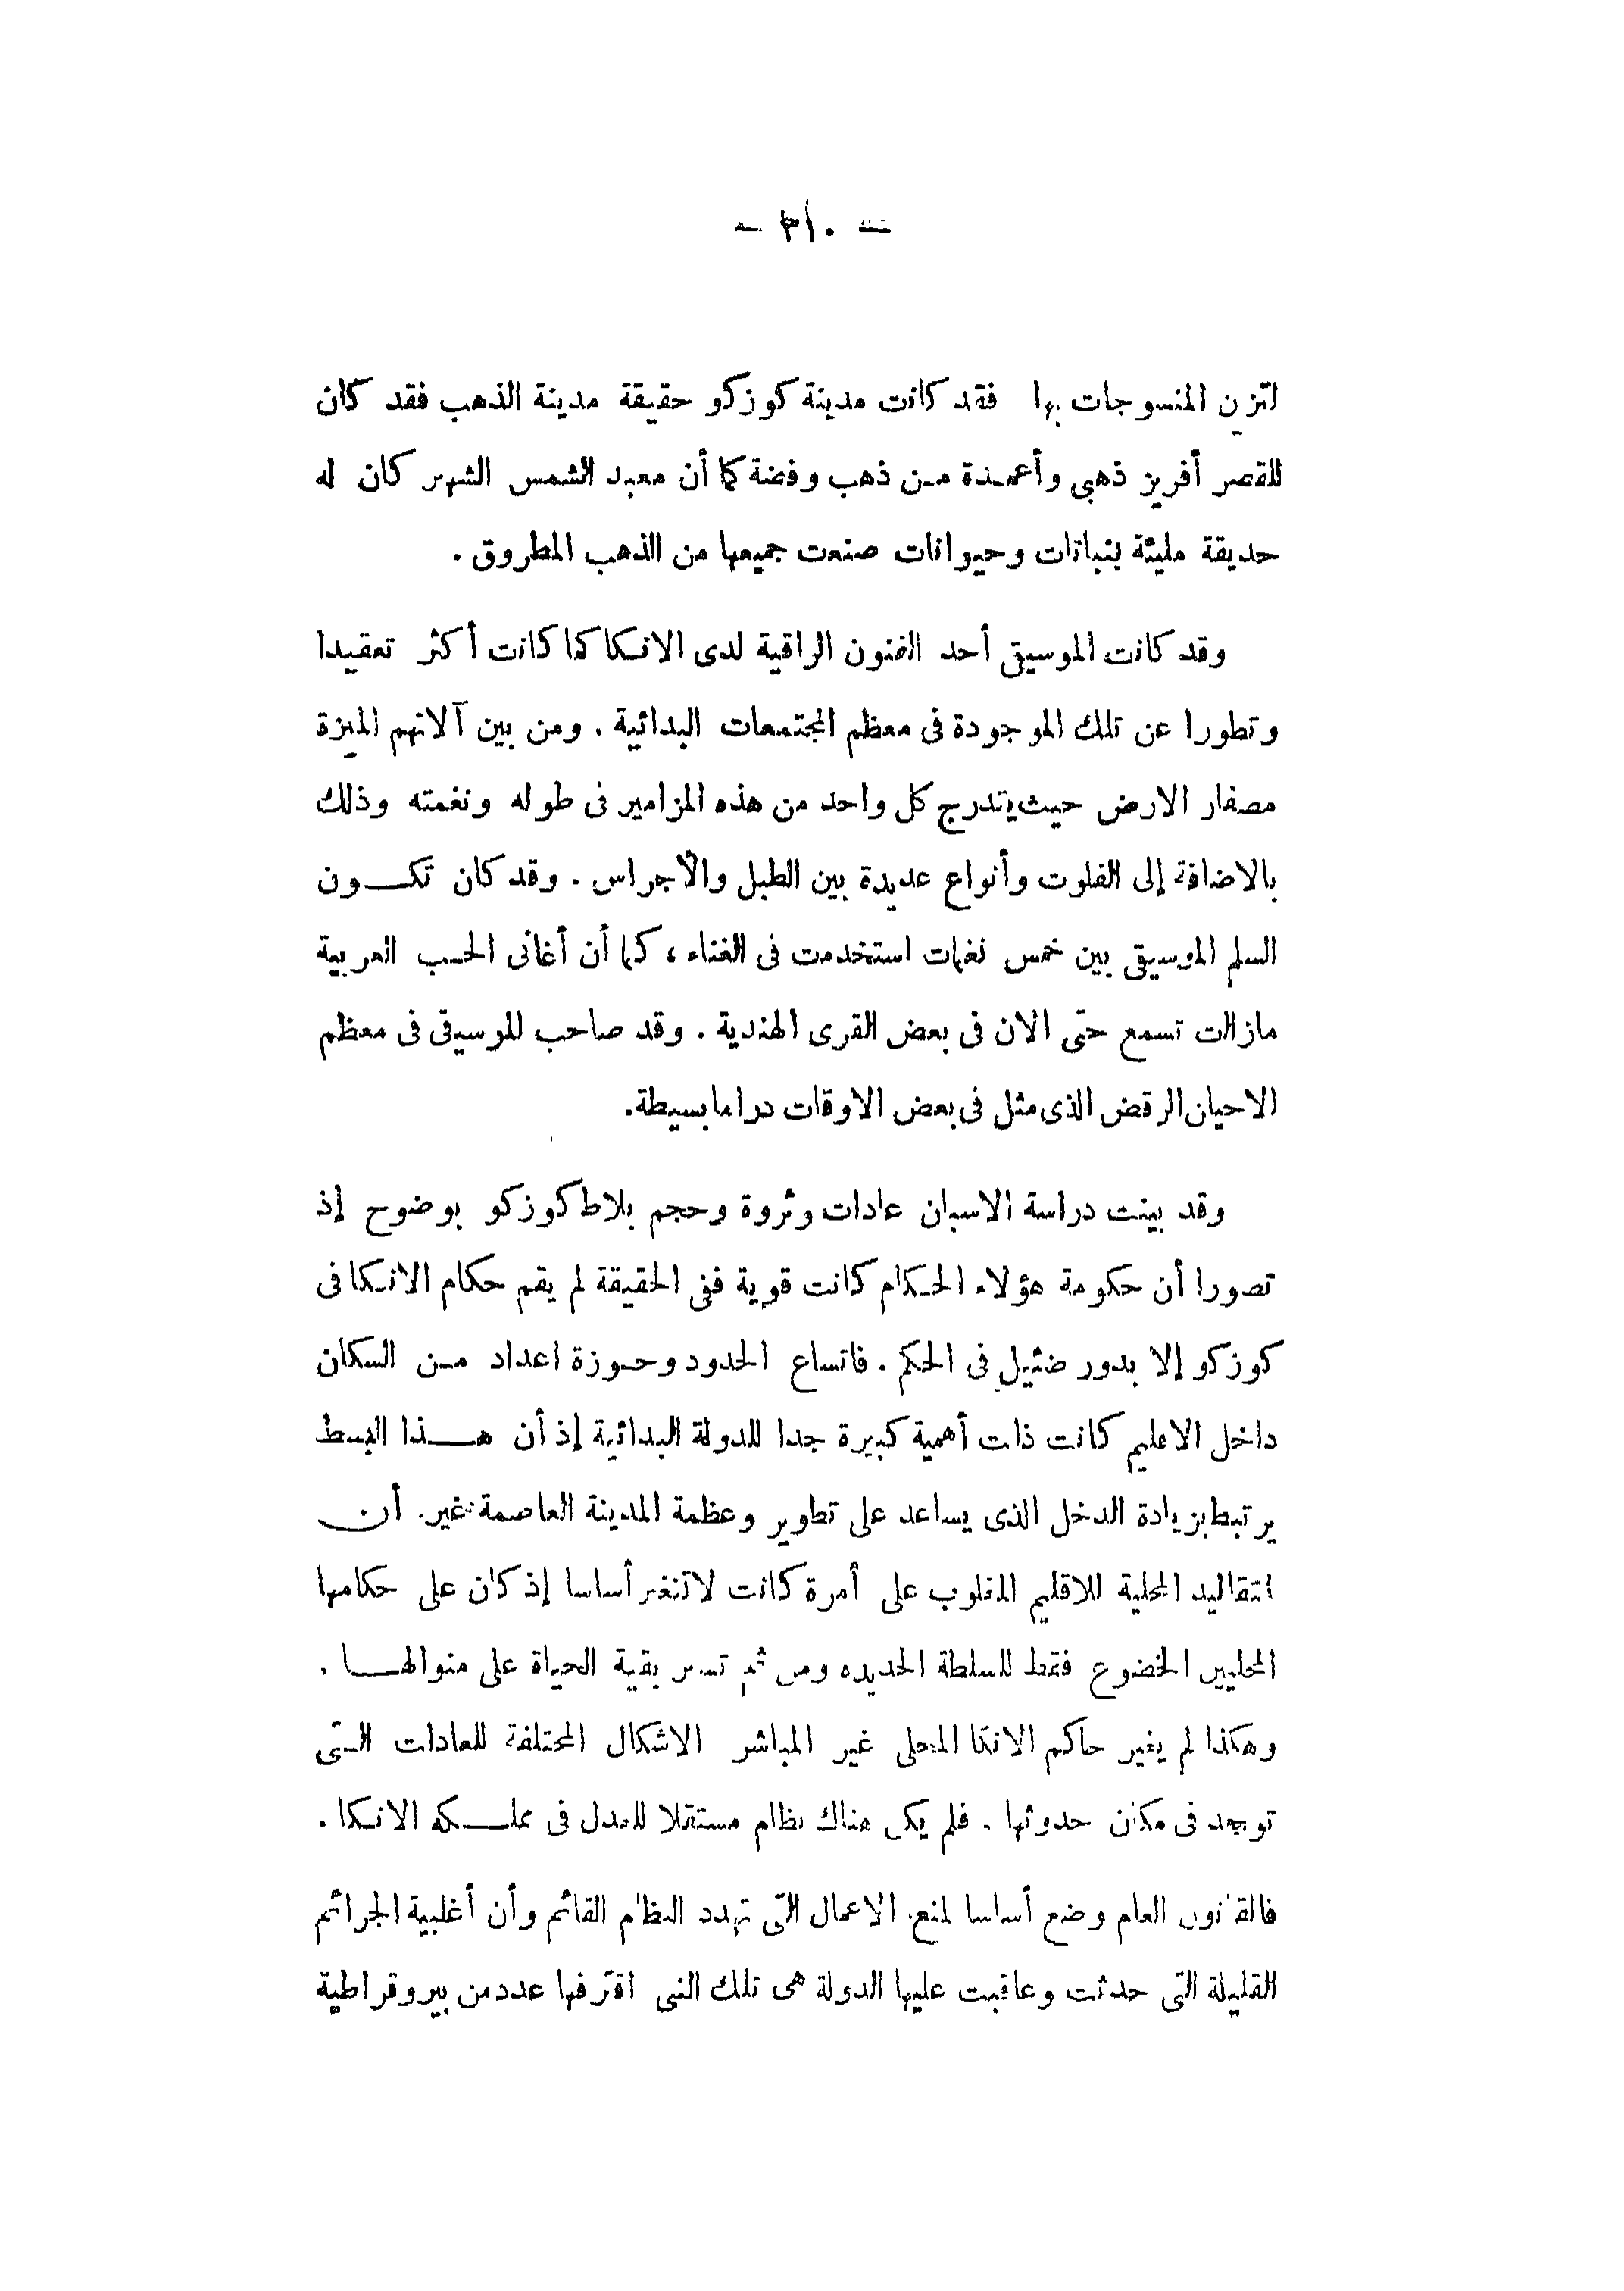 — ٣١٠ —
لتزين المنسوجات بها فقد كانت مدينة كوزكو حقيقة مدينة الذهب فقد كان
للقصر أفريز ذهبى وأعمدة من ذهب وفضة كما أن معبد الشمس الشهير كان له
حديقة مليئة بنباتات وحيوانات صنعت جميعها من الذهب المطروق .
وقد كانت الموسيقى أحد الفنون الراقية لدى الانكا كما كانت أكثر تعقيدا
وتطورا عن تلك الموجودة فى معظم المجتمعات البدائية . ومن بين آلاتهم المميزة
مصفار الارض حيث يتدرج كل واحد من هذه المزامير فى طوله ونغمته وذلك
بالاضافة إلى الفلوت وأنواع عديدة بين الطبل والأجراس . وقد كان تكون
السلم الموسيقى بين خمس نغمات استخدمت فى الغناء ، كما أن أغانى الحب العربية
مازالت تسمع حتى الان فى بعض القرى الهندية . وقد صاحب الموسيقى فى معظم
الاحيان الرقض الذى مثل فى بعض الاوقات دراما بسيطة .
وقد بينت دراسة الاسبان عادات وثروة وحجم بلاط كوزكو بوضوح إذ
تصورا أن حكومة هؤلاء الحكام كانت قوية ففى الحقيقة لم يقم حكام الانكا فى
كوزكو إلا بدور ضئيل فى الحكم . فاتساع الحدود وحوزة اعداد من السكان
داخل الاقليم كانت ذات أهمية كبيرة جدا للدولة البدائية إذ أن هذا البسط
يرتبط بزيادة الدخل الذى يساعد على تطوير وعظمة المدينة العاصمة غير أن
التقاليد المحلية للاقليم المغلوب على أمرة كانت لا تتغير أساسا إذ كان على حكامها
المحليين الخضوع فقط للسلطة الجديده ومن ثم تسير بقية الحياة على منوالها .
وهكذا لم يغير حاكم الانكا المحلى غير المباشر الاشكال المختلفة للعادات التى
توجد فى مكان حدوثها . فلم يكن هناك نظام مستقلا للعدل فى مملكه الانكا .
فالقانون العام وضع أساسا لمنع الاعمال التى تهدد النظام القائم وأن أغلبية الجرائم
القليلة التى حدثت وعاقبت عليها الدولة هى تلك التى اقترفها عدد من بيروقراطية